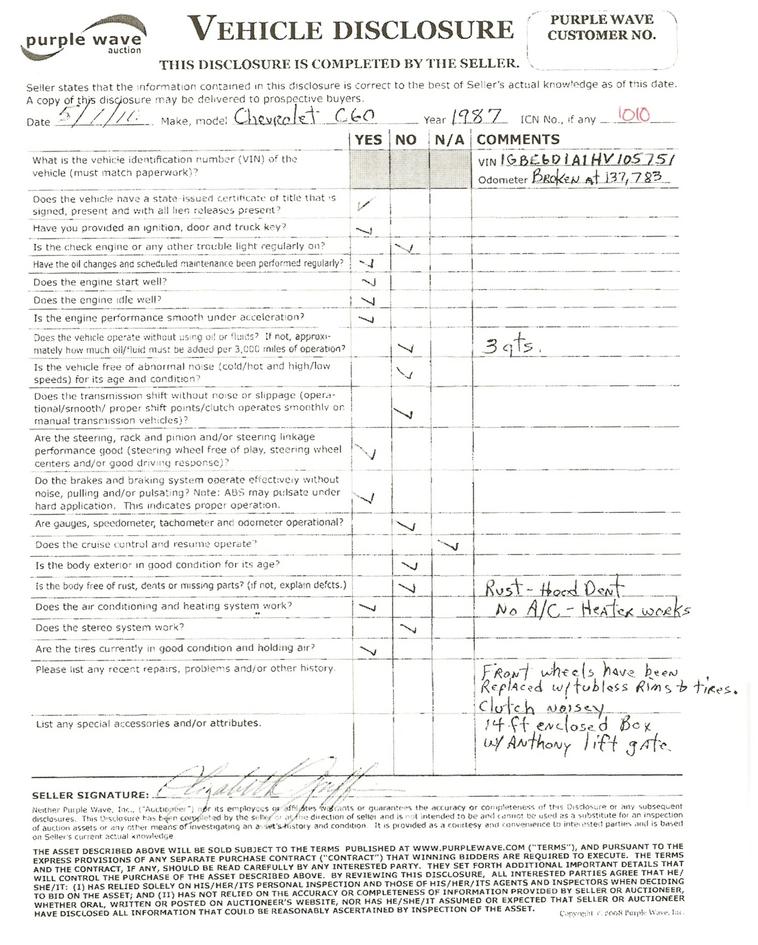 purple wave
auction
VEHICLE DISCLOSURE
PURPLE WAVE
CUSTOMER NO.
THIS DISCLOSURE IS COMPLETED BY THE SELLER.
Seller states that the information contained in this disclosure is correct to the best of Seller's actual knowledge as of this date.
A copy of this disclosure may be delivered to prospective buyers.
Date 5/1/11. Make, model Chevrolet C60 Year 1987 ICN No., if any 1010
YES NO N/A COMMENTS
What is the vehicle identification number (VIN) of the VIN 1GBE6D1A1HV105751
vehicle (must match paperwork)? Odometer Broken at 137,783
Does the vehicle have a state-issued certificate of title that is
signed, present and with all lien releases present?
Have you provided an ignition, door and truck key?
Is the check engine or any other trouble light regularly on?
Have the oil changes and scheduled maintenance been performed regularly?
Does the engine start well?
Does the engine idle well?
Is the engine performance smooth under acceleration?
Does the vehicle operate without using oil or fluids? If not, approxi-
mately how much oil/fluid must be added per 3,000 miles of operation? 3 qts.
Is the vehicle free of abnormal noise (cold/hot and high/low
speeds) for its age and condition?
Does the transmission shift without noise or slippage (opera-
tional/smooth/ proper shift points/clutch operates smoothly on
manual transmission vehicles)?
Are the steering, rack and pinion and/or steering linkage
performance good (steering wheel free of play, steering wheel
centers and/or good driving response)?
Do the brakes and braking system operate effectively without
noise, pulling and/or pulsating? Note: ABS may pulsate under
hard application. This indicates proper operation.
Are gauges, speedometer, tachometer and odometer operational?
Does the cruise control and resume operate?
Is the body exterior in good condition for its age?
Is the body free of rust, dents or missing parts? (if not, explain defcts.) Rust - Hood Dent
Does the air conditioning and heating system work? No A/C - Heater works
Does the stereo system work?
Are the tires currently in good condition and holding air?
Please list any recent repairs, problems and/or other history. Front wheels have been
Replaced w/tubless Rims & tires.
Clutch noisey
List any special accessories and/or attributes. 14 ft enclosed Box
w/ Anthony lift gate.
SELLER SIGNATURE: Elizabeth
Neither Purple Wave, Inc., ("Auctioneer") nor its employees or affiliates warrants or guarantees the accuracy or completeness of this Disclosure or any subsequent
disclosures. This Disclosure has been completed by the seller or at the direction of seller and is not intended to be and cannot be used as a substitute for an inspection
of auction assets or any other means of investigating an asset's history and condition. It is provided as a courtesy and convenience to interested parties and is based
on Seller's current actual knowledge.
THE ASSET DESCRIBED ABOVE WILL BE SOLD SUBJECT TO THE TERMS PUBLISHED AT WWW.PURPLEWAVE.COM ("TERMS"), AND PURSUANT TO THE
EXPRESS PROVISIONS OF ANY SEPARATE PURCHASE CONTRACT ("CONTRACT") THAT WINNING BIDDERS ARE REQUIRED TO EXECUTE. THE TERMS
AND THE CONTRACT, IF ANY, SHOULD BE READ CAREFULLY BY ANY INTERESTED PARTY. THEY SET FORTH ADDITIONAL IMPORTANT DETAILS THAT
WILL CONTROL THE PURCHASE OF THE ASSET DESCRIBED ABOVE. BY REVIEWING THIS DISCLOSURE, ALL INTERESTED PARTIES AGREE THAT HE/
SHE/IT: (I) HAS RELIED SOLELY ON HIS/HER/ITS PERSONAL INSPECTION AND THOSE OF HIS/HER/ITS AGENTS AND INSPECTORS WHEN DECIDING
TO BID ON THE ASSET; AND (II) HAS NOT RELIED ON THE ACCURACY OR COMPLETENESS OF INFORMATION PROVIDED BY SELLER OR AUCTIONEER,
WHETHER ORAL, WRITTEN OR POSTED ON AUCTIONEER'S WEBSITE, NOR HAS HE/SHE/IT ASSUMED OR EXPECTED THAT SELLER OR AUCTIONEER
HAVE DISCLOSED ALL INFORMATION THAT COULD BE REASONABLY ASCERTAINED BY INSPECTION OF THE ASSET.
Copyright © 2008 Purple Wave, Inc.